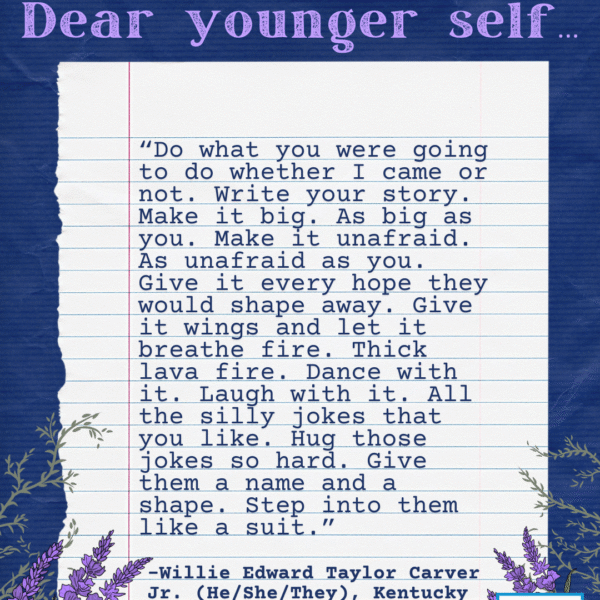 Dear younger self...
“Do what you were going
to do whether I came or
not. Write your story.
Make it big. As big as
you. Make it unafraid.
As unafraid as you.
Give it every hope they
would shape away. Give
it wings and let it
breathe fire. Thick
lava fire. Dance with
it. Laugh with it. All
the silly jokes that
you like. Hug those
jokes so hard. Give
them a name and a
shape. Step into them
like a suit.”
-Willie Edward Taylor Carver
Jr. (He/She/They), Kentucky